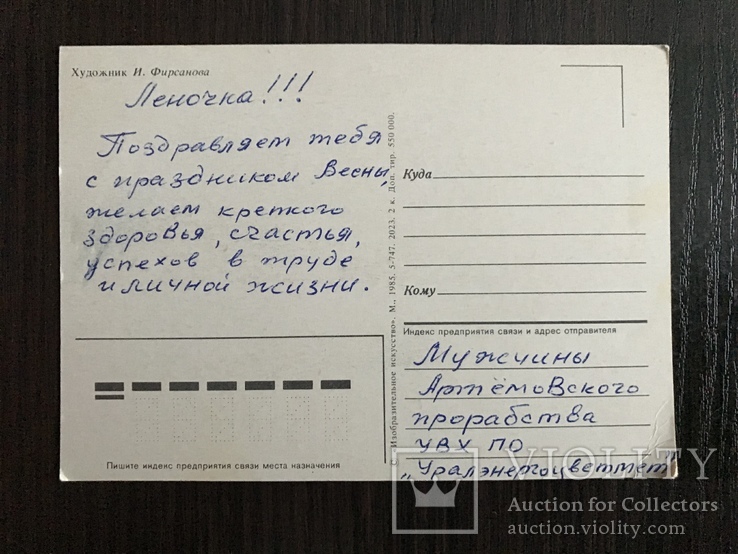 Художник И. Фирсанова
Леночка!!!
Поздравляем тебя
с праздником Весны,
желаем крепкого
здоровья, счастья,
успехов в труде
и личной жизни.
Пишите индекс предприятия связи места назначения
© «Изобразительное искусство». М., 1985. 5-747. 2023. 2 к. Доп. тир. 550 000.
Куда
Кому
Индекс предприятия связи и адрес отправителя
Мужчины
Артёмовского
прорабства
УВХ ПО
„Уралэнергоцветмет"
VIOLITY
Auction for Collectors
auction.violity.com